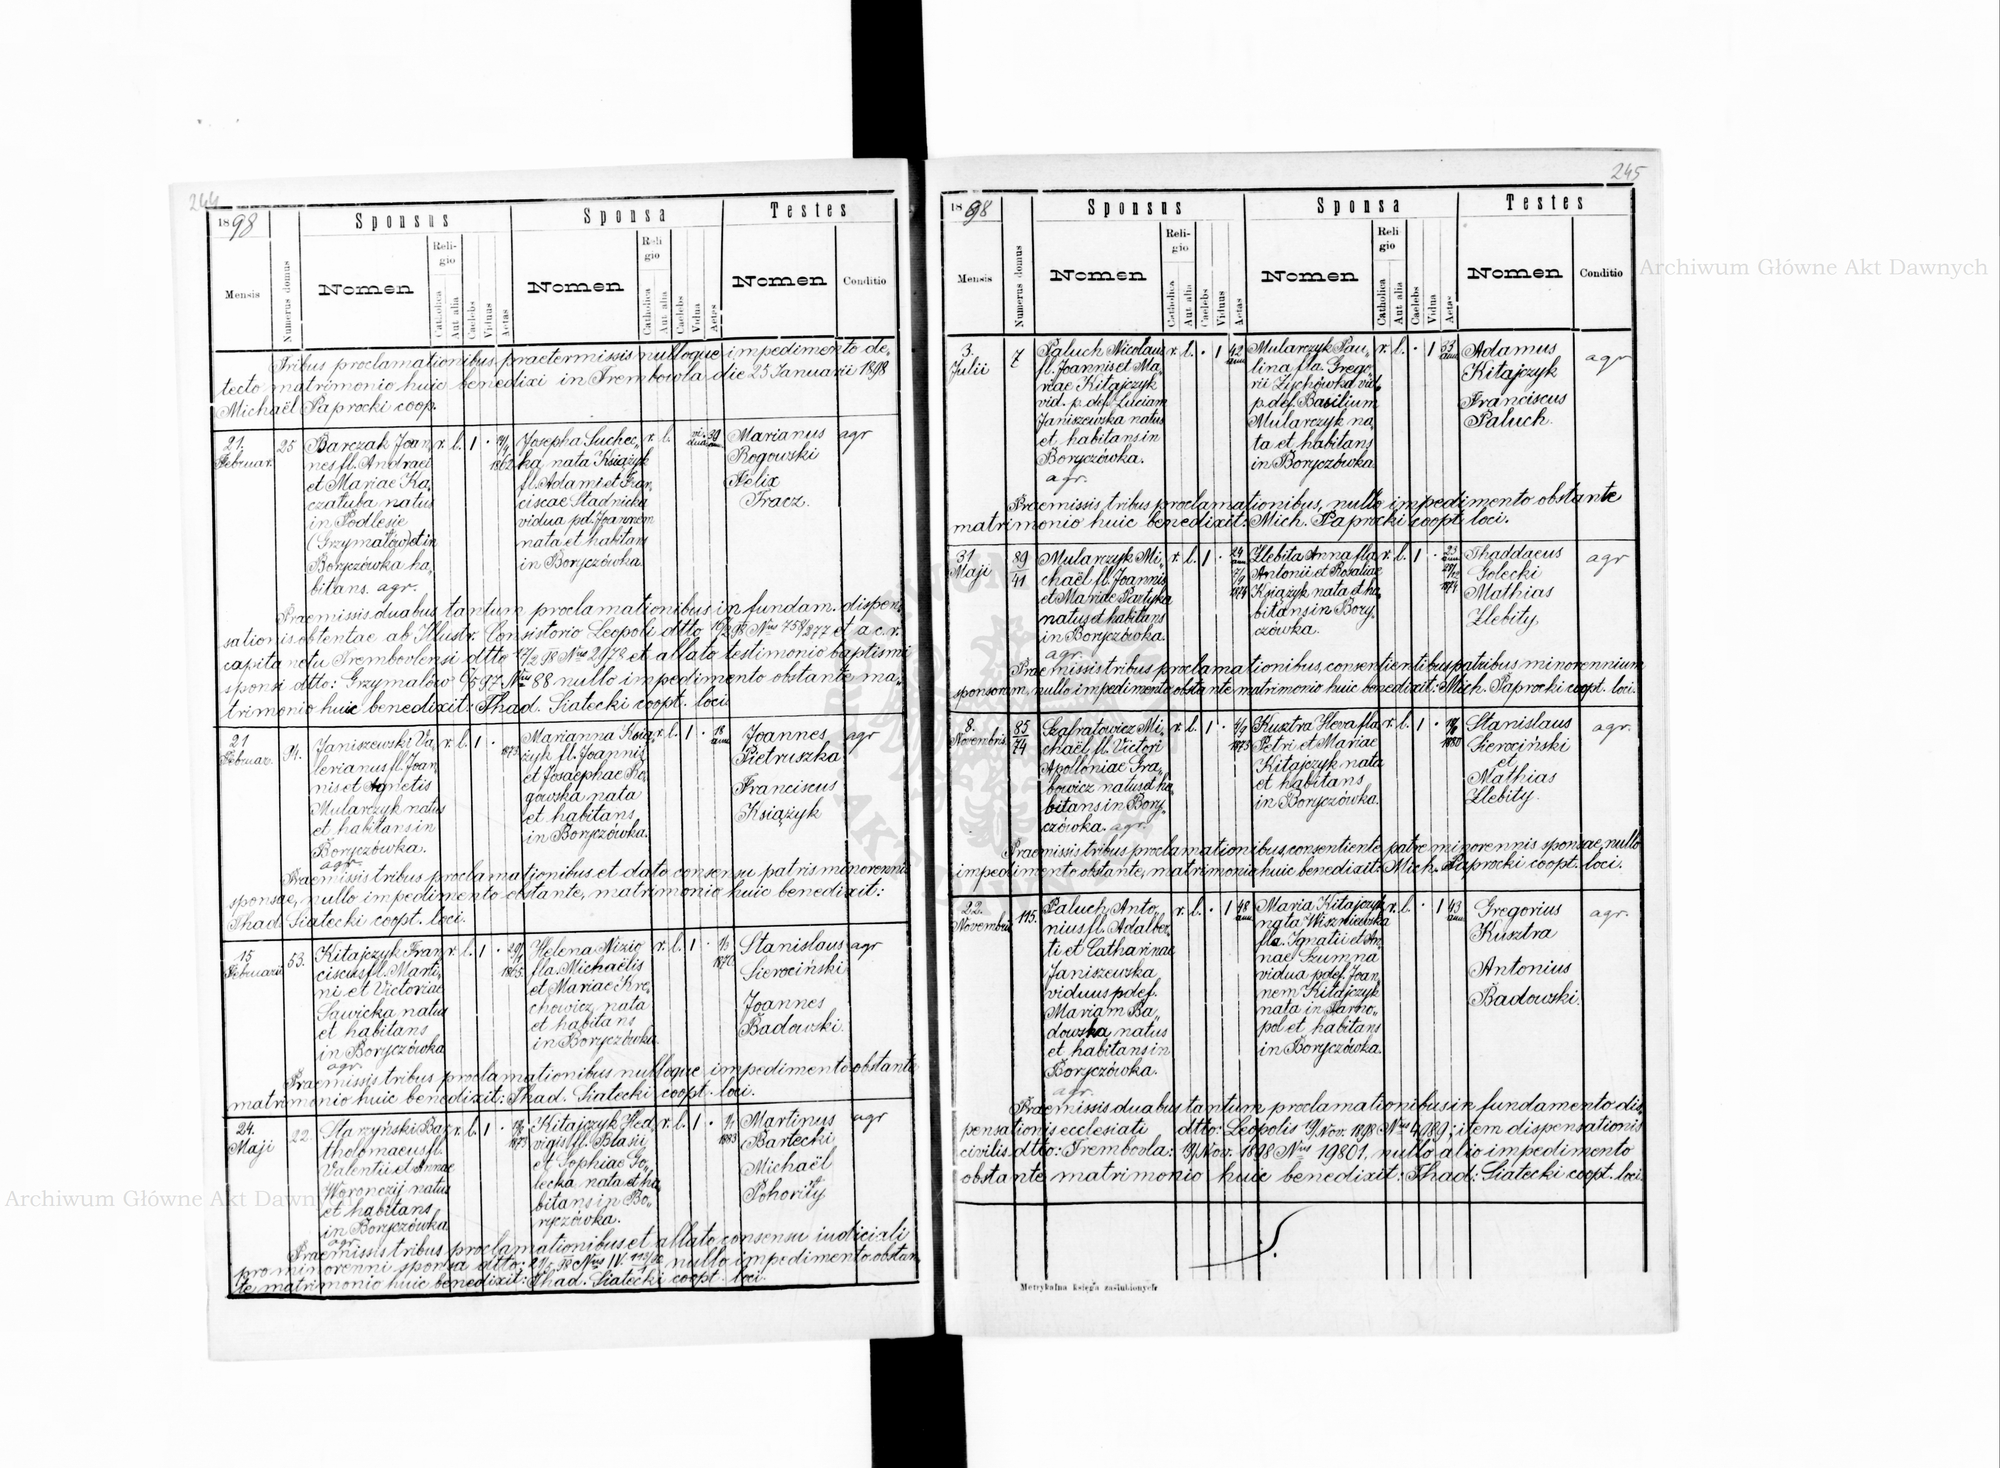 244
1898
Sponsus
Sponsa
Testes
Mensis
Numerus domus
Nomen
Religio
Catholica
Aut alia
Caelebs
Viduus
Aetas
Nomen
Religio
Catholica
Aut alia
Caelebs
Vidua
Aetas
Nomen
Conditio
Tribus proclamationibus praetermissis nulloque impedimento de„
tecto matrimonio huic benedixi in Trembowla die 25 Januarii 1898
Michaël Paprocki coop.
21.
Februar.
25
Barczak Joan„
nes fl. Andraei
et Mariae Ka„
czatuba natus
in Podlesie
(Grzymałów) et in
Boryczówka ha„
bitans. agr.
r. l. 1 .
1862
Josepha Suchec„
ka nata Książyk
fl. Adami et Fran„
ciscae Stadnicka
vidua p.d. Joannem
nata et habitans
in Boryczówka
r. l.
vi„
dua
39
ann.
Marianus
Rogowski
Felix
Tracz.
agr
Praemissis duabus tantum proclamationibus in fundam. dispen„
sationis obtentae ab Illustr. Consistorio Leopoli dtto 98 Nrus et a c. r.
capitanatu Trembovlensi dtto 17/2 98 Nrus 2978 et allato testimonio baptismi
sponsi dtto: Grzymałów 97 Nrus 88 nullo impedimento obstante ma„
trimonio huic benedixit: Thad. Siatecki coopt. loci
21
Februar.
94.
Janiszewski Va„
lerianus fl. Joan„
nis et Agnetis
Mularczyk natus
et habitans in
Boryczówka.
agr.
r. l. 1 .
1873
Marianna Ksią„
żyk fl. Joannis
et Josaephae Ro„
gowska nata
et habitans
in Boryczówka.
r. l. 1 .
18
ann.
Joannes
Pietruszka
Franciscus
Książyk
agr
Praemissis tribus proclamationibus et dato consensu patris minorennis
sponsae, nullo impedimento obstante, matrimonio huic benedixit:
Thad. Siatecki coopt. loci.
15
Februarii
53.
Kitajczyk Fran„
ciscus fl. Marti„
ni et Victoriae
Sawicka natus
et habitans
in Boryczówka
agr.
r. l. 1 .
1865.
Helena Nizio
fla. Michaëlis
et Mariae Kre„
chowicz nata
et habitans
in Boryczówka.
r. l. 1 .
Stanislaus
Sierociński
Joannes
Badowski.
agr
Praemissis tribus proclamationibus nulloque impedimento obstante
matrimonio huic benedixit: Thad. Siatecki coopt. loci.
24.
Maji
22.
Starzyński Bar„
tholomaeus fl.
Valentii et Annae
Woronczij natus
et habitans
in Boryczówka
agr.
r. l. 1 .
1873
Kitajczyk Hed„
vigis fl. Blasii
et Sophiae Go„
lecka nata et ha„
bitans in Bo„
ryczówka.
r. l. 1 .
Martinus
Bartecki
Michaël
Pohority
agr
Praemissis tribus proclamationibus et allato consensu iudiciali
pro minorenni sponsa dtto: 98 Nrus IV. nullo impedimento obstan„
te, matrimonio huic benedixit: Thad. Siatecki coopt. loci.
245
1898
Sponsus
Sponsa
Testes
Mensis
Numerus domus
Nomen
Religio
Catholica
Aut alia
Caelebs
Viduus
Aetas
Nomen
Religio
Catholica
Aut alia
Caelebs
Vidua
Aetas
Nomen
Conditio
3.
Julii
7
Paluch Nicolaus
fl. Joannis et Ma„
riae Kitajczyk
vid. p. def. Luciam
Janiszewska natus
et habitans in
Boryczówka.
agr.
r. l. . 1
42
ann
Mularczyk Pau„
lina fla. Grego„
rii Zychówka vid.
p. def. Basilium
Mularczyk na„
ta et habitans
in Boryczówka
r. l. . 1
33
ann.
Adamus
Kitajczyk
Franciscus
Paluch.
agr
Praemissis tribus proclamationibus, nullo impedimento obstante
matrimonio huic benedixit: Mich. Paprocki coopt. loci.
31
Maji
89
41
Mularczyk Mi„
chaël fl. Joannis
et Mariae Partyka
natus et habitans
in Boryczówka.
agr.
r. l. 1 .
24
ann
7/9
1874
Zlebita Anna fla
Antonii et Rosaliae
Książyk nata et ha„
bitans in Bory„
czówka.
r. l. 1 .
23
ann
1874
Thaddaeus
Golecki
Mathias
Zlebity.
agr
Praemissis tribus proclamationibus, consentientibus patribus minorennium
sponsorum, nullo impedimento obstante matrimonio huic benedixit: Mich. Paprocki coopt. loci.
8.
Novembris.
85
74
Szafratowicz Mi„
chaël fl. Victori
Apolloniae Gra„
bowicz natus et ha„
bitans in Bory„
czówka. agr.
r. l. 1 .
4/9
1873
Kusztra Heva fla
Petri et Mariae
Kitajczyk nata
et habitans
in Boryczówka.
r. l. 1 .
1880
Stanislaus
Sierociński
et
Mathias
Zlebity.
agr.
Praemissis tribus proclamationibus, consentiente patre minorennis sponsae, nullo
impedimento obstante, matrimonio huic benedixit: Mich. Paprocki coopt. loci.
22.
Novembris
115.
Paluch Anto„
nius fl. Adalber„
ti et Catharinae
Janiszewska
viduus p. def.
Mariam Ba„
dowska natus
et habitans in
Boryczówka.
agr.
r. l. . 1
48
ann.
Maria Kitajczyk
nata Wiszniewska
fla. Ignatii et An„
nae Szumna
vidua p. def. Joan„
nem Kitajczyk
nata in Tarno„
pol et habitans
in Boryczówka.
r. l. . 1
43
ann.
Gregorius
Kusztra
Antonius
Badowski.
agr.
Praemissis duabus tantum proclamationibus in fundamento dis„
pensationis ecclesiati dtto: Leopolis Nov. 1898 Nrus 4989; item dispensationis
civilis dtto: Trembovla: Nov. 1898 Nrus 19801. nullo alio impedimento
obstante matrimonio huic benedixit: Thad: Siatecki coopt. loci.
Metrykalna księga zaślubionych
Archiwum Główne Akt Dawnych
Archiwum Główne Akt Dawnych